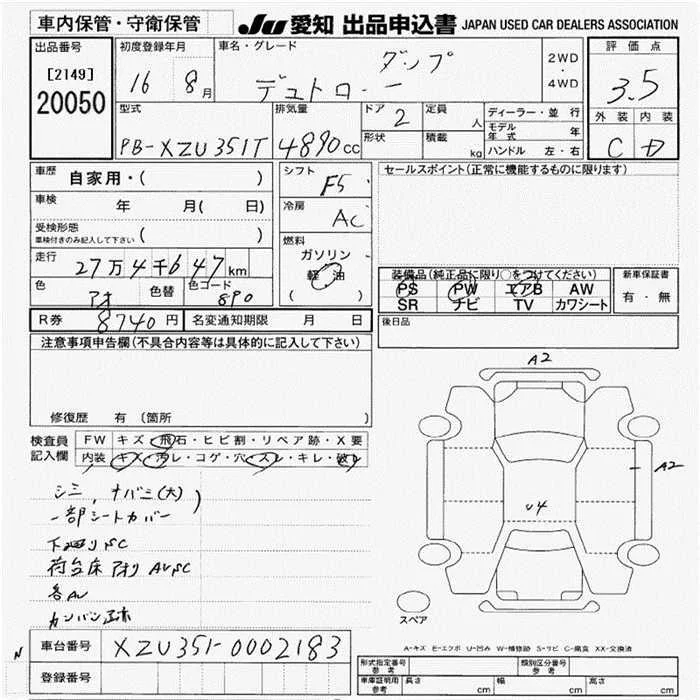 車内保管・守衛保管
JU 愛知 出品申込書 JAPAN USED CAR DEALERS ASSOCIATION
出品番号
[2149]
20050
初度登録年月
16 8月
車名・グレード
ダンプ
デュトロ
2WD
・
4WD
評価点
3.5
外装 内装
C D
型式
PB-XZU351T
排気量
4890cc
ドア
2
形状
定員
人
積載
kg
ディーラー・並行
モデル年式 年
ハンドル 左・右
車歴
自家用・( )
車検
年 月( 日)
受検形態
車検付きのみ記入して下さい
( )
走行
27万4千647km
色
アオ
色替
色コード
890
R券 8740円
名変通知期限 月 日
シフト
F5
冷房
AC
燃料
ガソリン
軽油
( )
セールスポイント(正常に機能するものに限ります)
装備品(純正品に限り○をつけてください)
PS PW エアB AW
SR ナビ TV カワシート
新車保証書
有・無
後日品
注意事項申告欄(不具合内容等は具体的に記入して下さい)
修復歴 有 (箇所 )
検査員記入欄
FW キズ・飛石・ヒビ割・リペア跡・X要
内装 キズ・汚レ・コゲ・穴・スレ・キレ・破レ
シミ, ナバミ(大)
一部シートカバー
下廻りSC
荷台床 アオリ AUSC
各AU
カンバン跡
A2
A2
U4
スペア
A-キズ E-エクボ U-凹み W-補修跡 S-サビ C-腐食 XX-交換済
N
車台番号 XZU351-0002183
登録番号
形式指定番号
参考
類別区分番号
参考
車庫証明用
参考
長さ cm 幅 cm 高さ cm